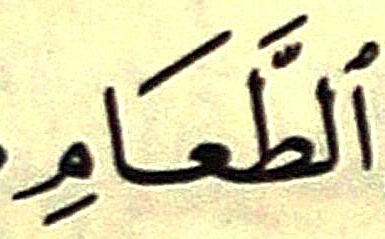 ٱلطَّعَامِ